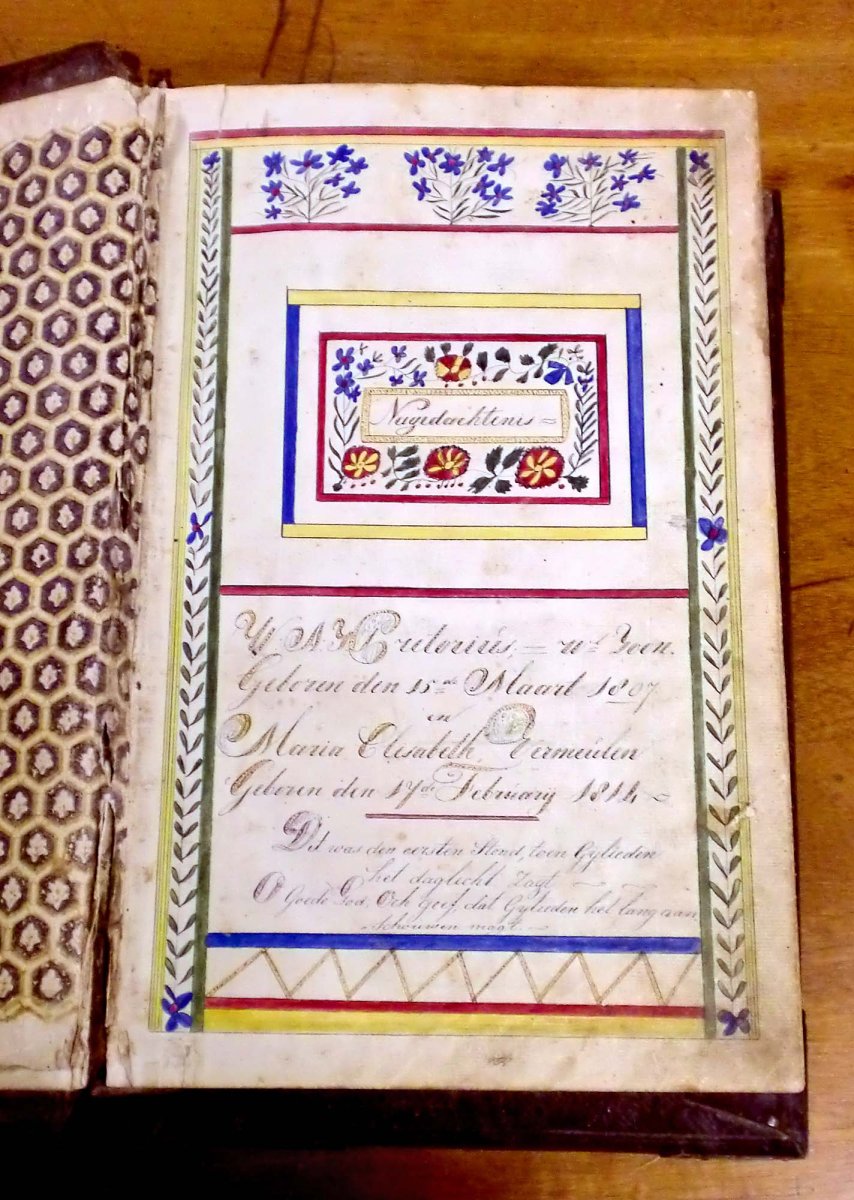 Nagedachtenis =
W. A. J. Pretorius = Zoon.
Geboren den 15de Maart 1807
en
Maria Elisabeth Vermeulen
Geboren den 17de February 1814
Dit was den eersten Stond, toen Gylieden
het daglicht Zagt,
O Goede God, Och geef, dat Gylieden het lang aan
schouwen moogt.